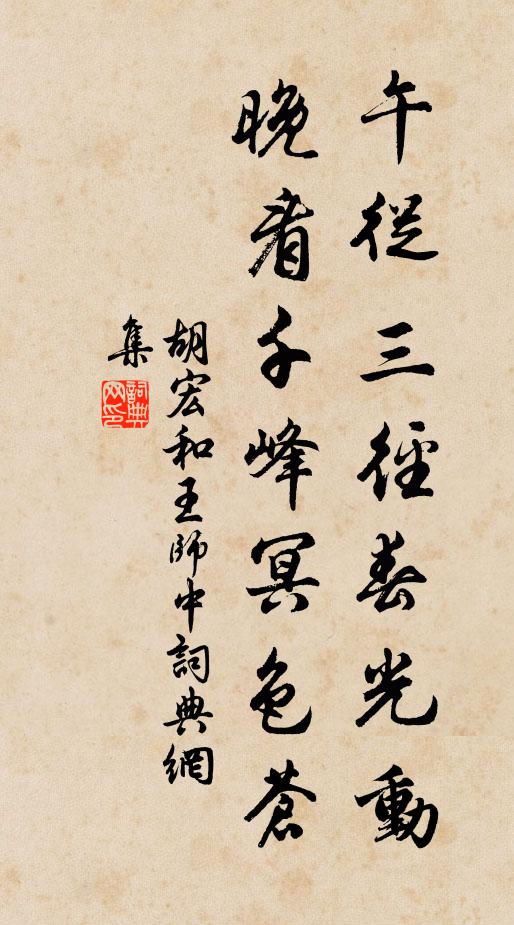 午從三徑春光動
晚看千峰冥色蒼
胡宏和王師中詞典網
集
詞典网印